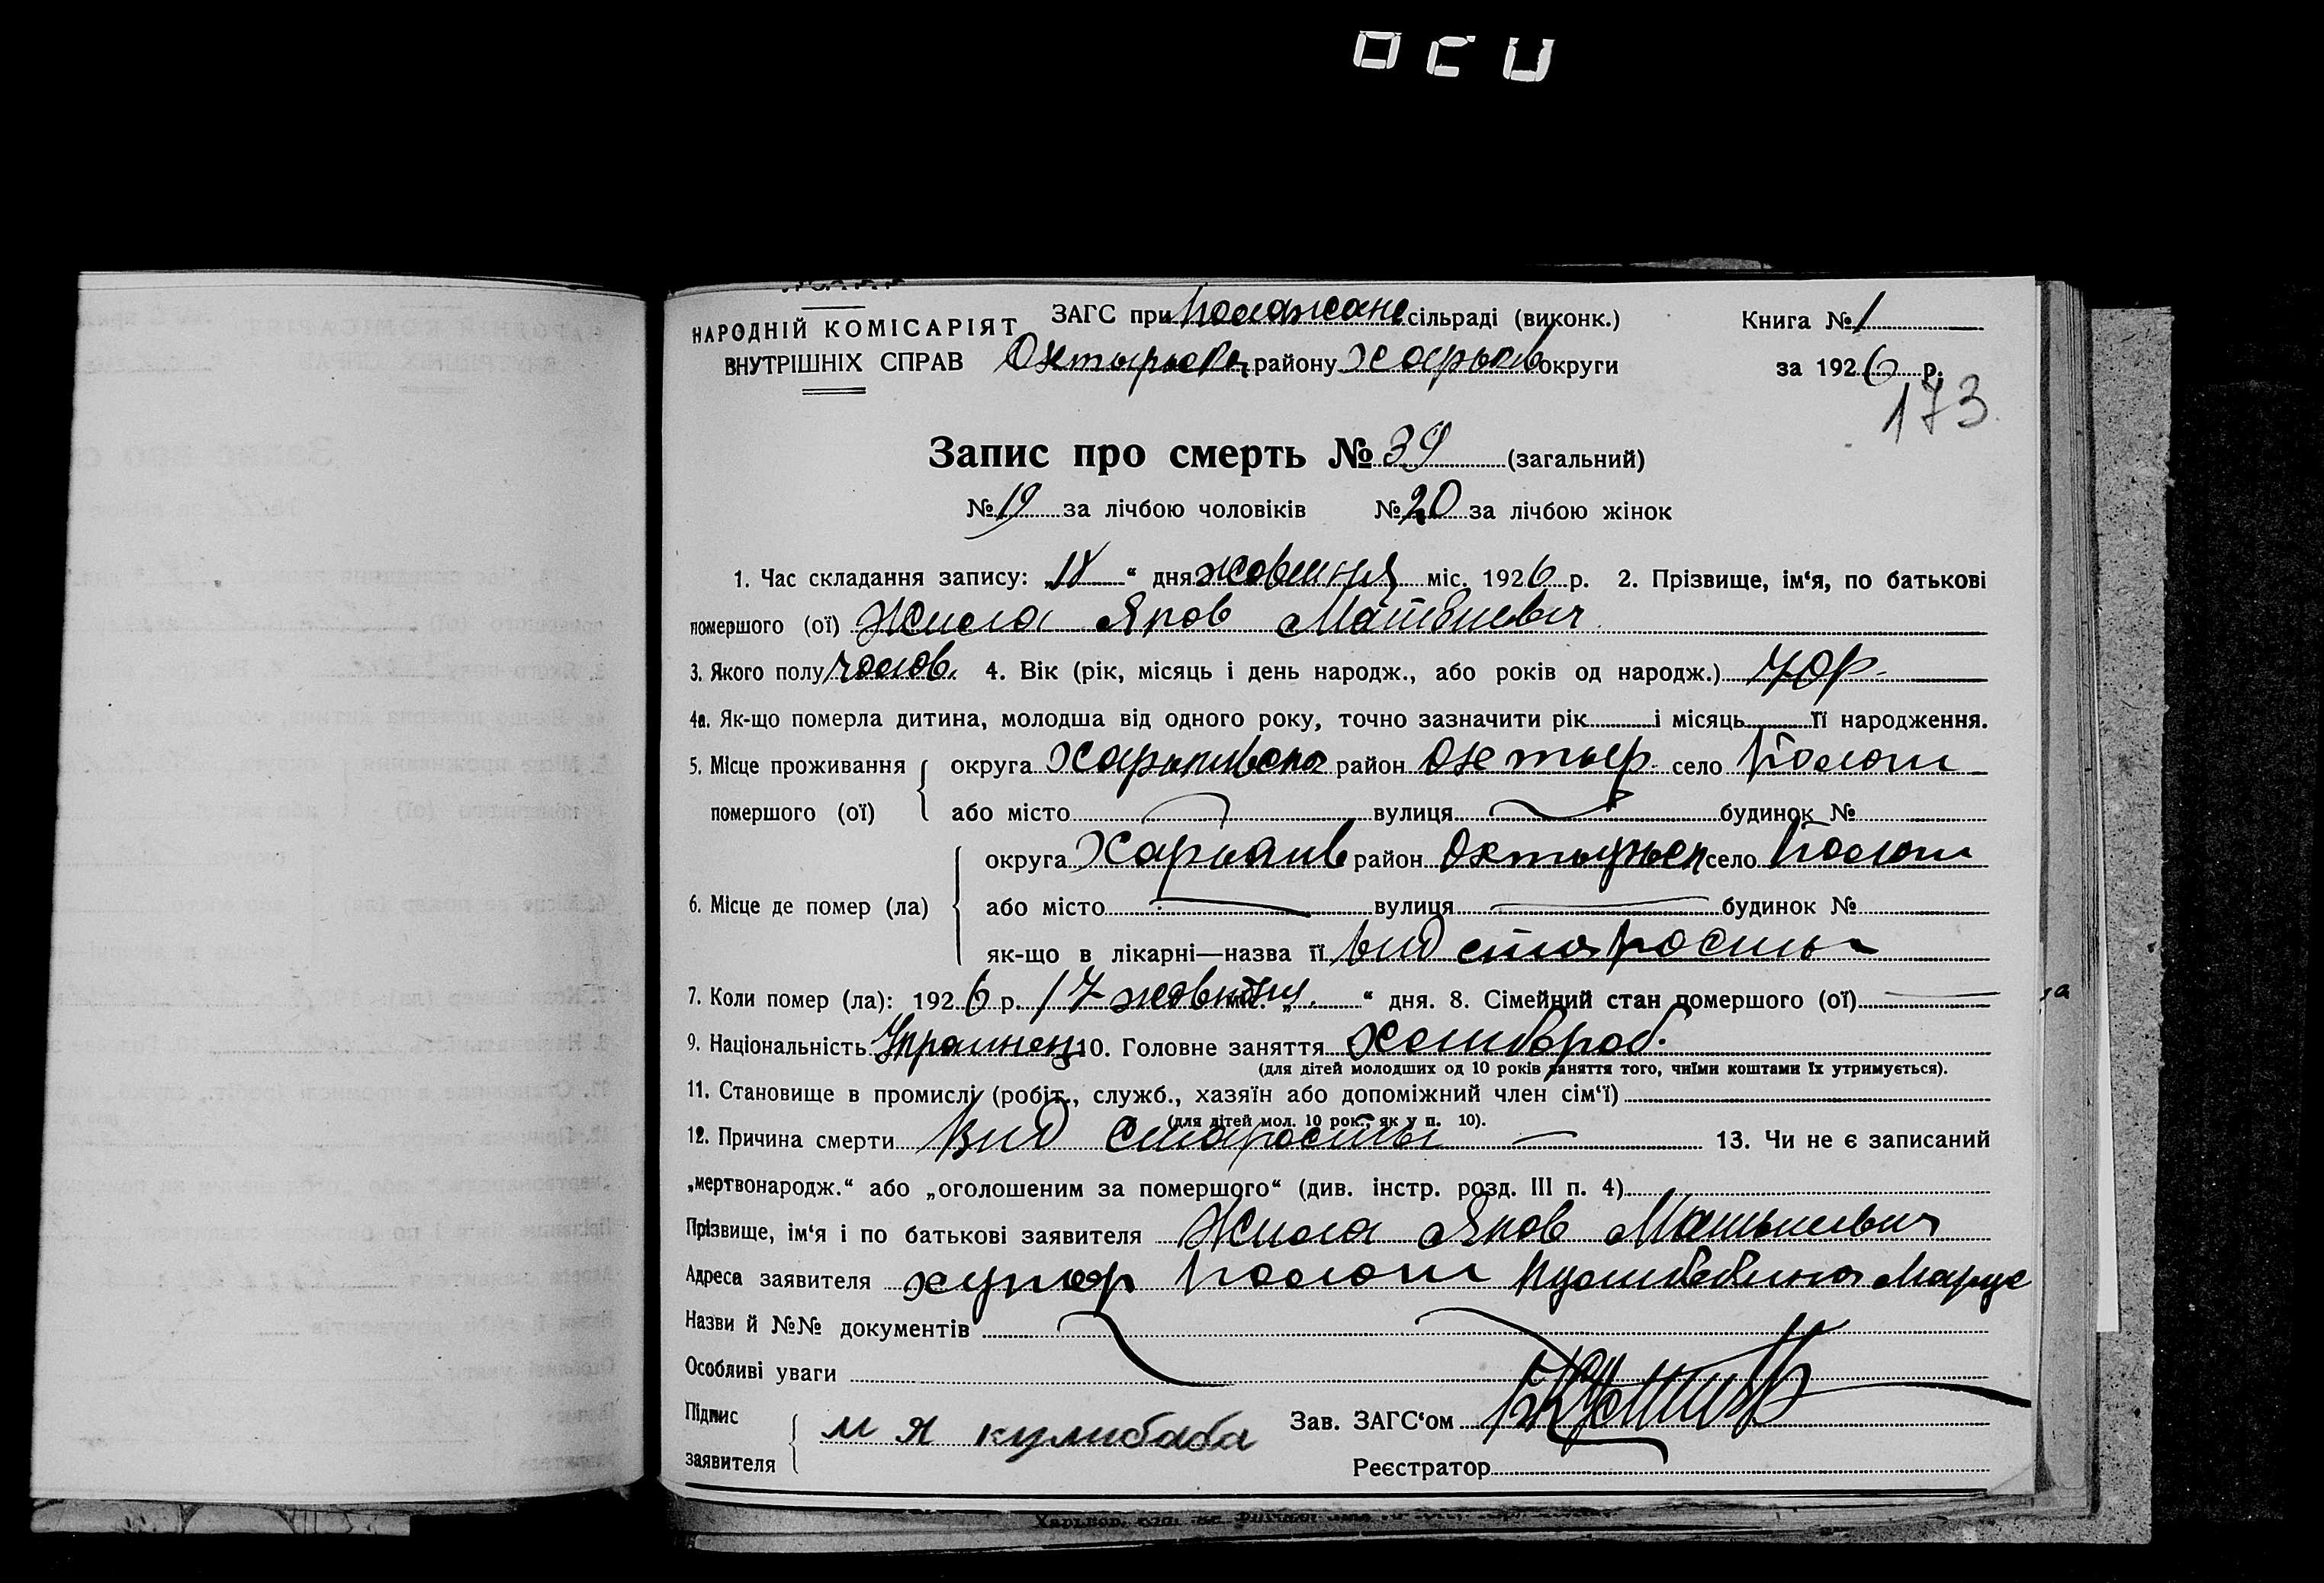 НАРОДНІЙ КОМІСАРІЯТ
ВНУТРІШНІХ СПРАВ
ЗАГС при сільраді (виконк.)
району Харьков округи
Книга № 1
за 1926 р.
173
Запис про смерть № 39 (загальний)
№ 19 за лічбою чоловіків № 20 за лічбою жінок
1. Час складання запису: „18“ дня жовтня міс. 1926 р. 2. Прізвище, ім‘я, по батькові
помершого (ої) Жила Яков
3. Якого полу чолов. 4. Вік (рік, місяць і день народж., або років од народж.) 70 р.
4а. Як-що померла дитина, молодша від одного року, точно зазначити рік і місяць її народження.
5. Місце проживання помершого (ої)
округа Харькивска район Охтыр. село
або місто вулиця будинок №
6. Місце де помер (ла)
округа Харькив район село
або місто вулиця будинок №
як-що в лікарні—назва її вид старосты
7. Коли помер (ла): 1926 р. 17 жовтня міс. „ “ дня. 8. Сімейний стан помершого (ої)
9. Національність Украинец 10. Головне заняття Хлибороб.
(для дітей молодших од 10 років заняття того, чиїми коштами їх утримується).
11. Становище в промислі (робіт., служб., хазяїн або допоміжний член сім‘ї)
(для дітей мол. 10 рок., як у п. 10).
12. Причина смерти вид старосты 13. Чи не є записаний
„мертвонародж.“ або „оголошеним за помершого“ (див. інстр. розд. III п. 4)
Прізвище, ім‘я і по батькові заявителя Жила Яков
Адреса заявителя хутор
Назви й №№ документів
Особливі уваги
Підпис заявителя м я кулибаба
Зав. ЗАГС‘ом
Реєстратор